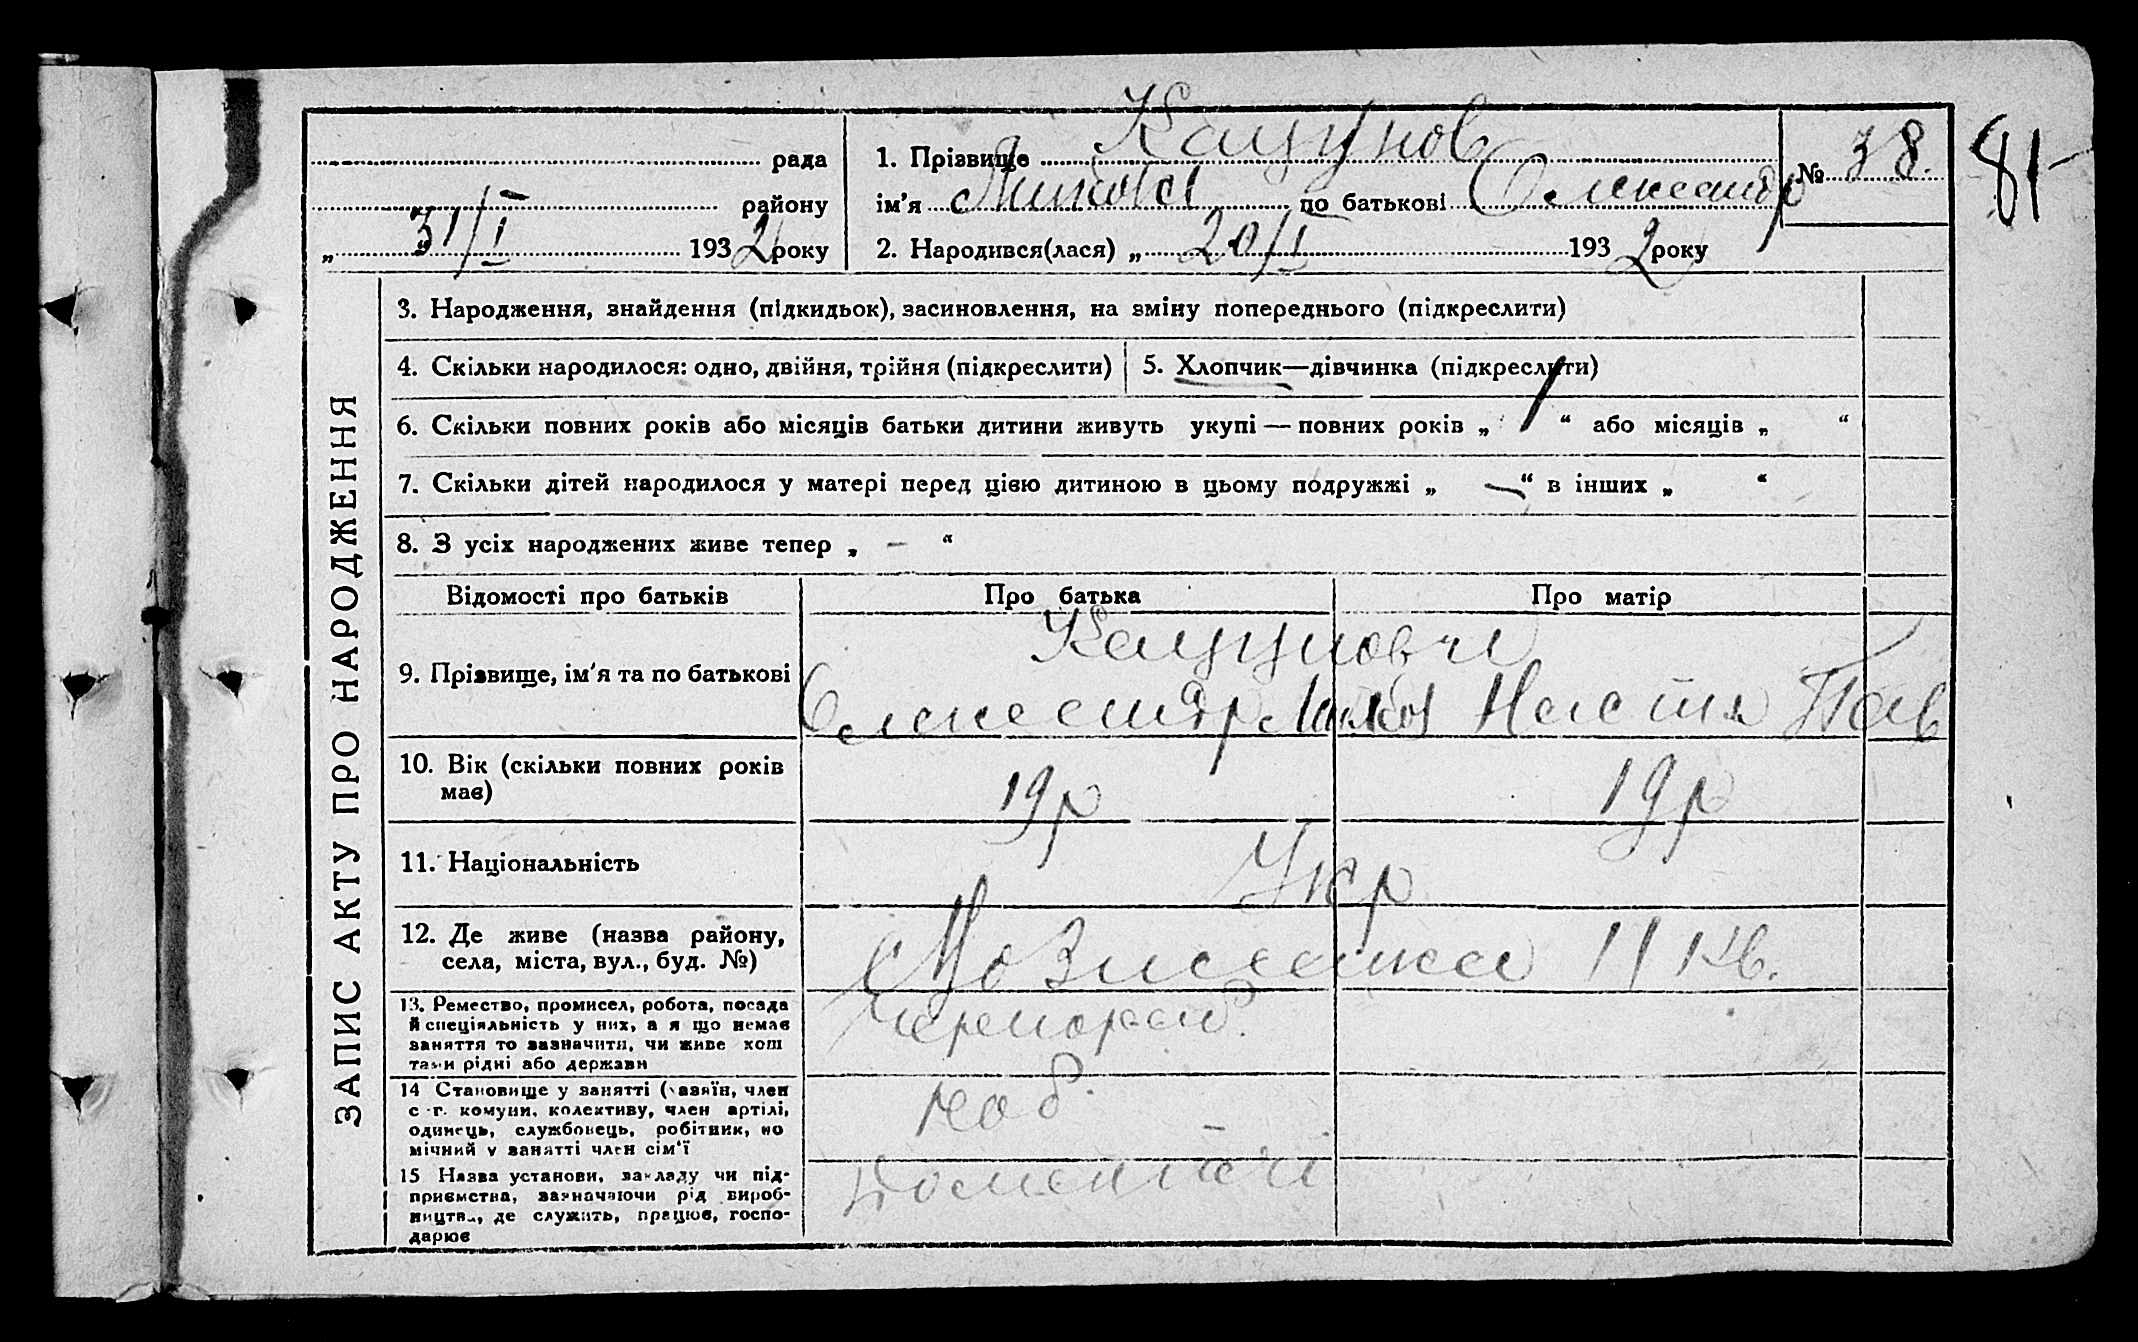 рада
району
„ 31/I 1932 року
1. Прізвище Кацунов
ім'я Микола по батькові Олександр
2. Народився(лася) „ 20/I 1932 року
№ 38.
81
ЗАПИС АКТУ ПРО НАРОДЖЕННЯ
3. Народження, знайдення (підкидьок), засиновлення, на зміну попереднього (підкреслити)
4. Скільки народилося: одно, двійня, трійня (підкреслити)
5. Хлопчик—дівчинка (підкреслити)
6. Скільки повних років або місяців батьки дитини живуть укупі — повних років „ 1 “ або місяців „ “
7. Скільки дітей народилося у матері перед цією дитиною в цьому подружжі „ — “ в інших „ “
8. З усіх народжених живе тепер „ — “
Відомості про батьків
Про батька
Про матір
9. Прізвище, ім'я та по батькові
Кацунови
Олександр Микол Настя Пав
10. Вік (скільки повних років
має)
19р
19р
11. Національність
Укр
12. Де живе (назва району,
села, міста, вул., буд. №)
11 кв.
13. Ремество, промисел, робота, посада
й спеціяльність у них, а я що немає
заняття то зазначити, чи живе кош
тами рідні або держави
чорнороб.
14 Становище у занятті (хазяїн, член
с.-г. комуни, колективу, член артілі,
одинець, службовець, робітник, по
мічний у занятті член сім'ї
роб.
15 Назва установи, закладу чи під-
приємства, зазначаючи рід вироб-
ництва, де служить, працює, госпо-
дарює